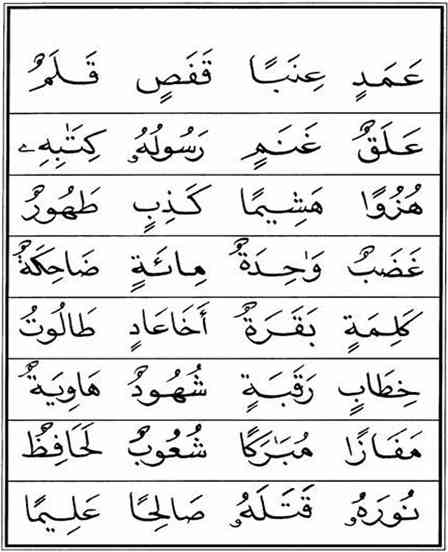 عَمَدٍ عِنَبًا قَفَصٍ قَلَمٌ
عَلَقٌ غَنَمٍ رَسُولُهُۥ كِتَٰبِهِۦ
هُزُوًا هَشِيمًا كَذِبٍ طَهُورٌ
غَضَبٌ وَٰحِدَةٌ مِائَةٍ ضَاحِكَةٌ
كَلِمَةٍ بَقَرَةٌ أَخَاعَادٍ طَالُوتُ
خِطَابٍ رَقَبَةٍ شُهُودٌ هَاوِيَةٌ
مَفَازًا مُبَٰرَكًا شُعُوبٌ لَحَافِظٌ
نُورَهُۥ قَتَلَهُۥ صَالِحًا عَلِيمًا